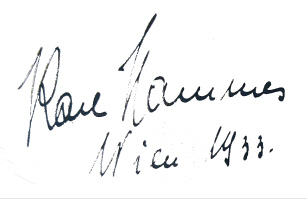 Karl Hammes
Wien 1933.